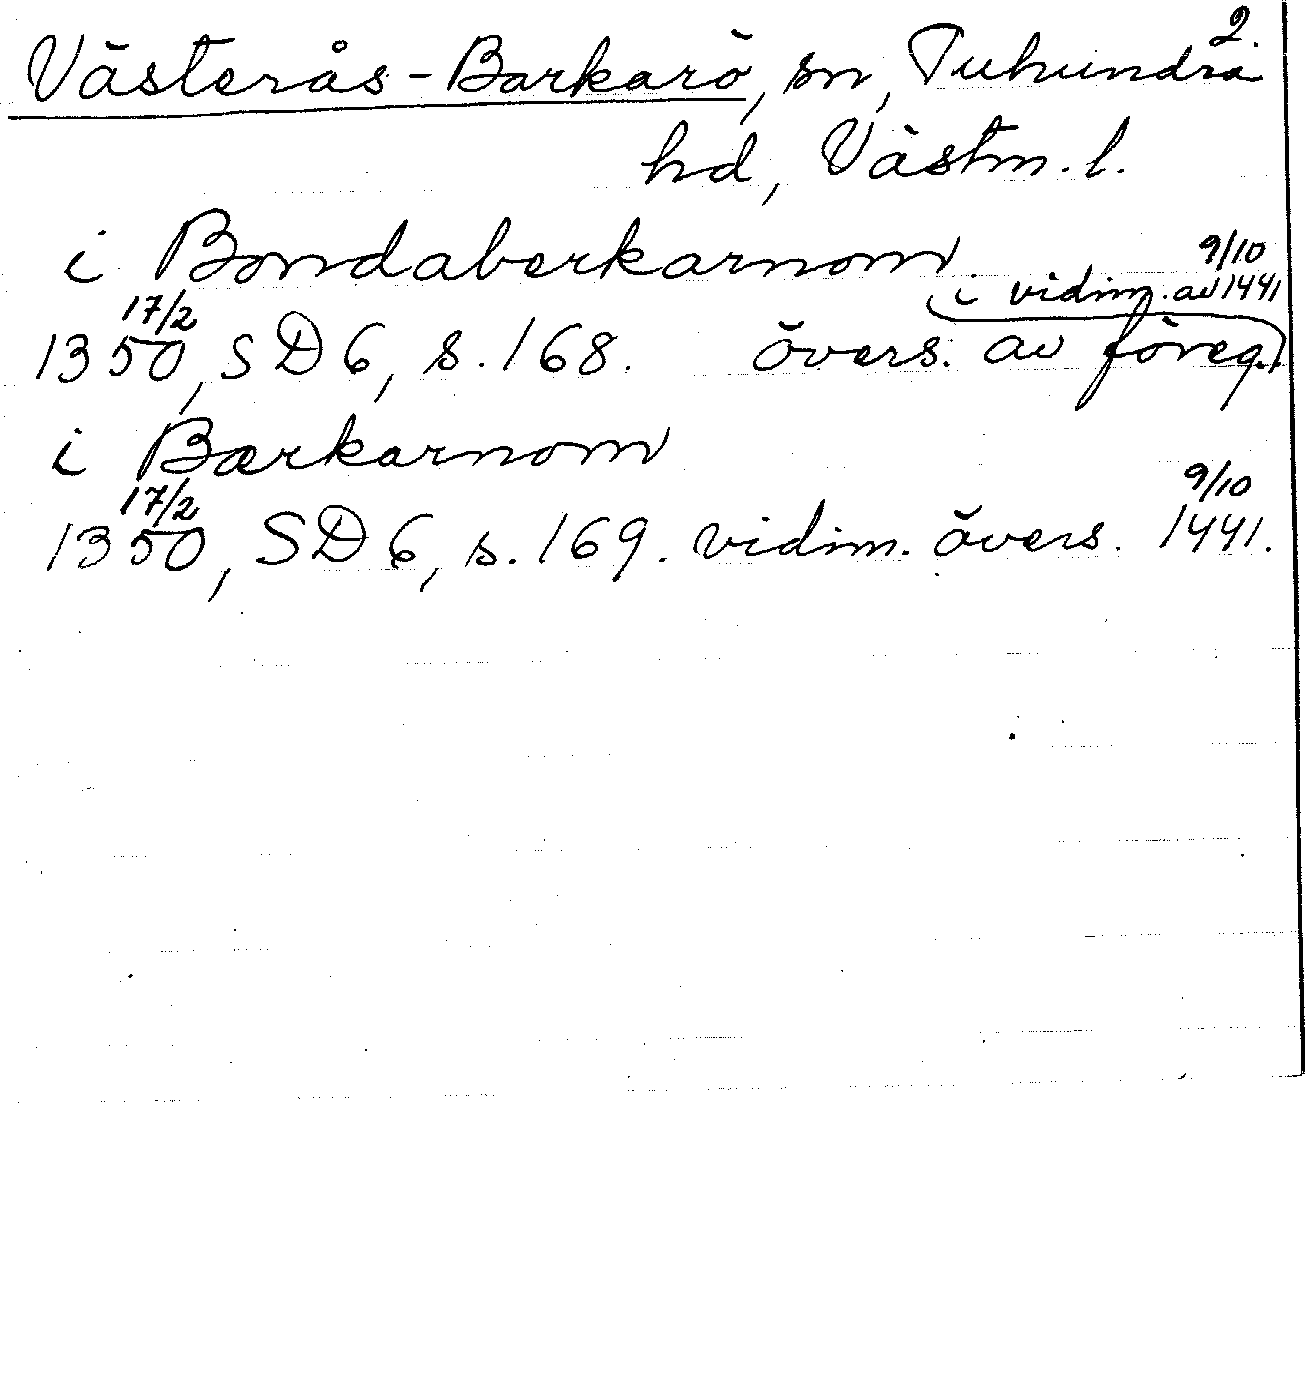 2.
Västerås-Barkarö, sn, Tuhundra
hd, Västm. l.
i Bondaberkarnom
9/10
i vidim. av 1441
17/2
1350, SD 6, s. 168. övers. av föreg.
i Bærkarnom
17/2
9/10
1350, SD 6, s. 169. vidim. övers. 1441.